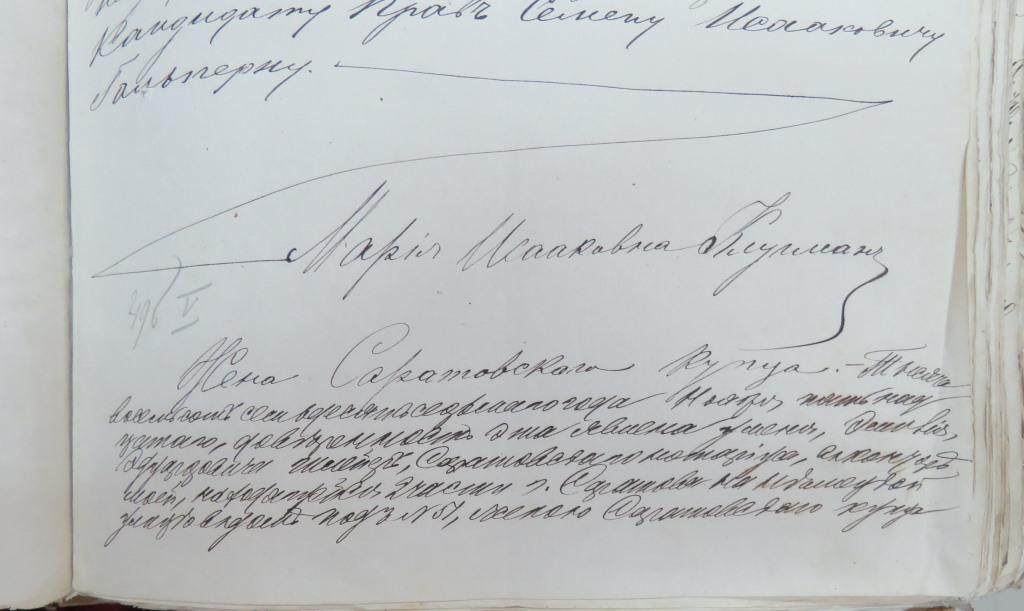 Кандидату Правъ Семену Исааковичу
Гальперну.
Марія Исааковна Клугман
496 V
Жена Саратовскаго купца. - Тысяча
восемьсотъ семьдесятъ седьмаго года Ноября пятнад
цатаго, довѣренность эта явлена у меня,
Саратовскаго нотаріуса, въ конторѣ
моей, находящейся 2 части г. Саратова на
улицѣ въ домѣ подъ № 51, женою Саратовскаго купца